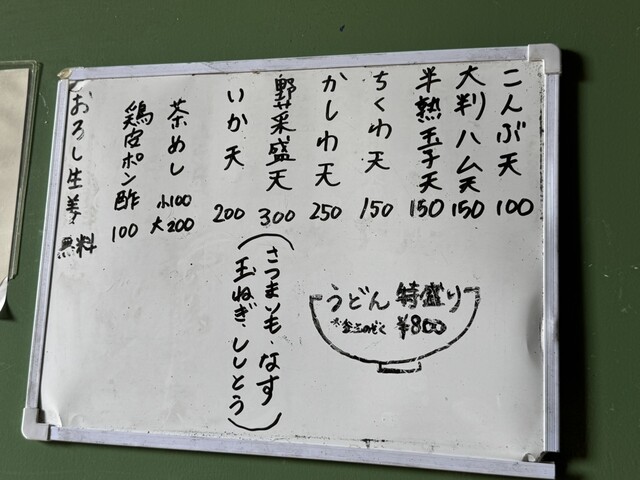 こんぶ天 100
大判ハム天 150
半熟玉子天 150
ちくわ天 150
かしわ天 250
野菜盛天 300
(さつまいも・なす
玉ねぎ・ししとう)
いか天 200
茶めし 小100
大200
鶏皮ポン酢 100
おろし生姜 無料
うどん 特盛り
※釜玉のぞく ¥800